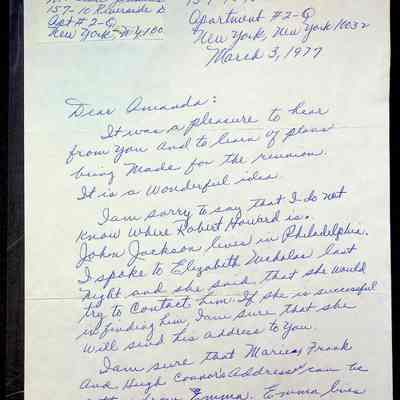 157-10 Riverside D
Apt # 2-Q
New York, N.Y. 100
Apartment #2-Q
New York, New York 10032
March 3, 1977
Dear Amanda:
It was a pleasure to hear
from you and to learn of plans
being made for the reunion.
It is a Wonderful idea.
I am sorry to say that I do not
know where Robert Howard is.
John Jackson lives in Philadelphia.
I spoke to Elizabeth Nicholas last
night and she said that she would
try to contact him. If she is successful
in finding him, I am sure that she
will send his address to you.
I am sure that Frank
And Hugh Connor's Address can be
Emma. Emma lives